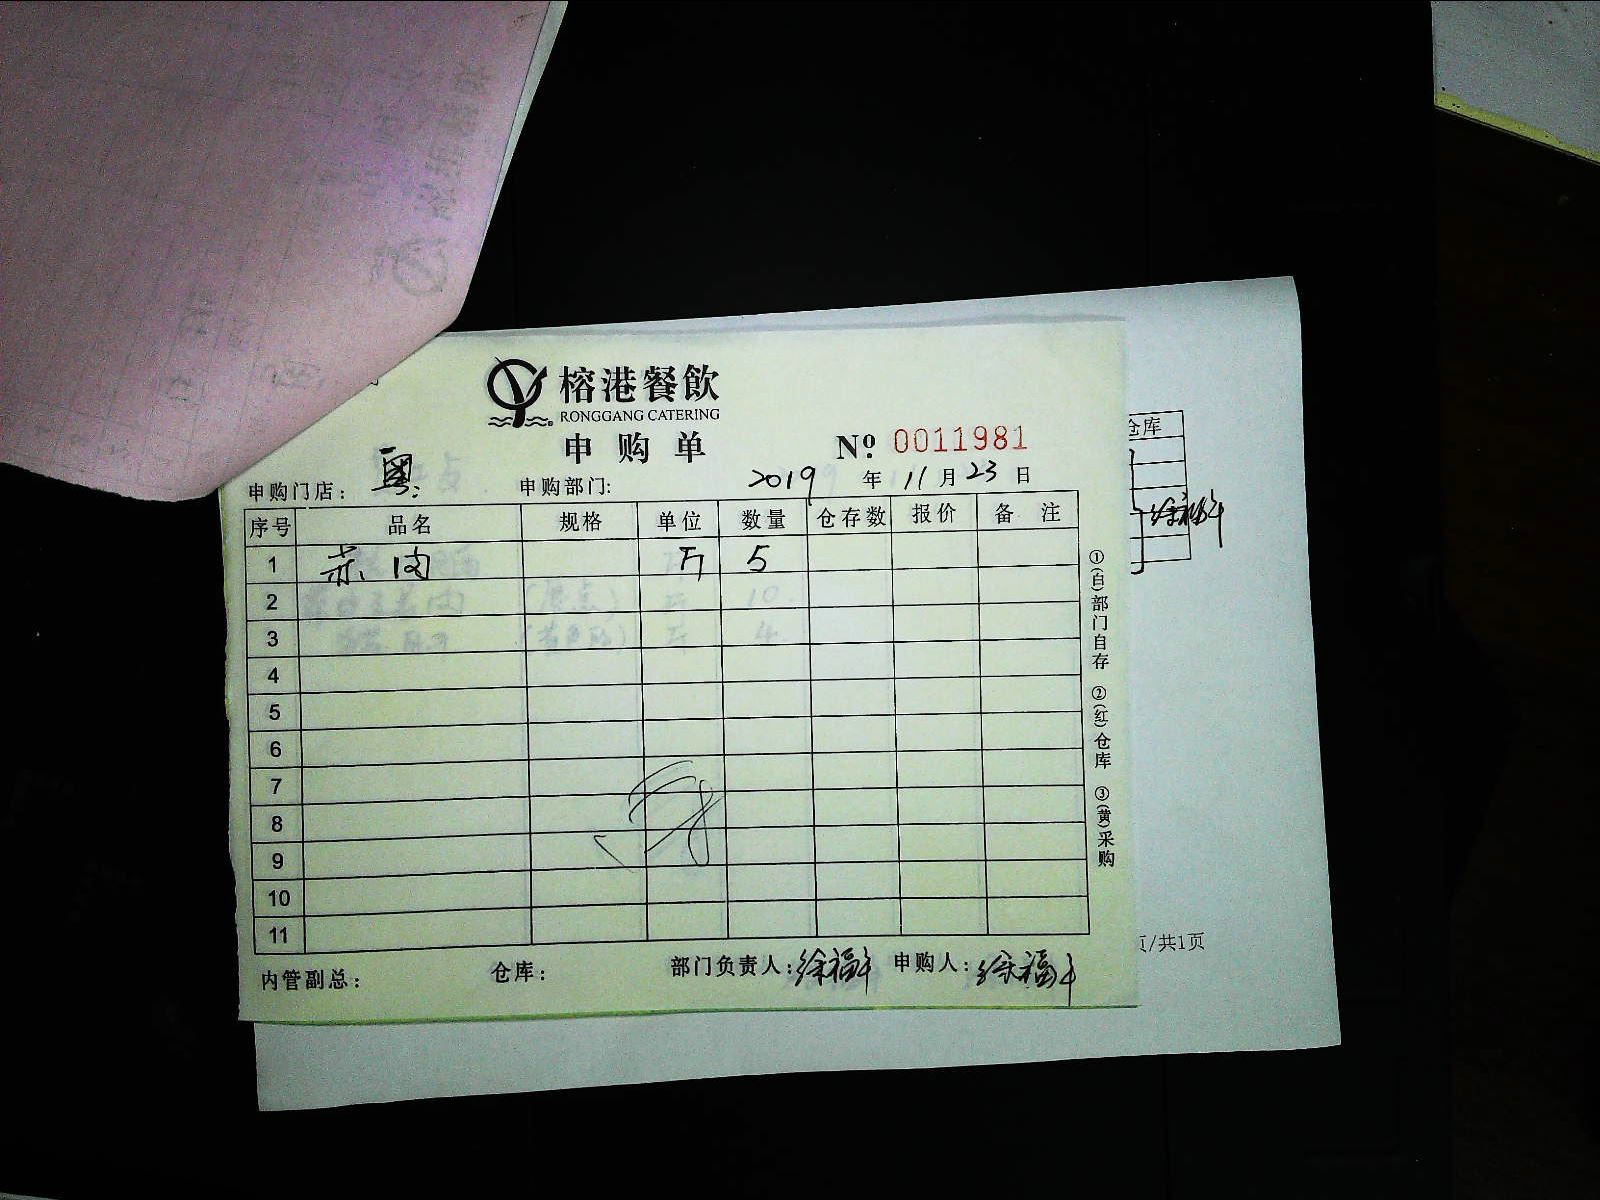 榕港餐飲
RONGGANG CATERING
申购单
№ 0011981
申购门店： 粤 申购部门: 2019 年 11 月 23 日
序号 品名 规格 单位 数量 仓存数 报价 备 注
1 斤 5
2
3
4
5
6
7
8
9
10
11
内管副总： 仓库： 部门负责人：徐福 申购人：徐福
①(白)部门自存 ②(红)仓库 ③(黄)采购
仓库
页/共1页